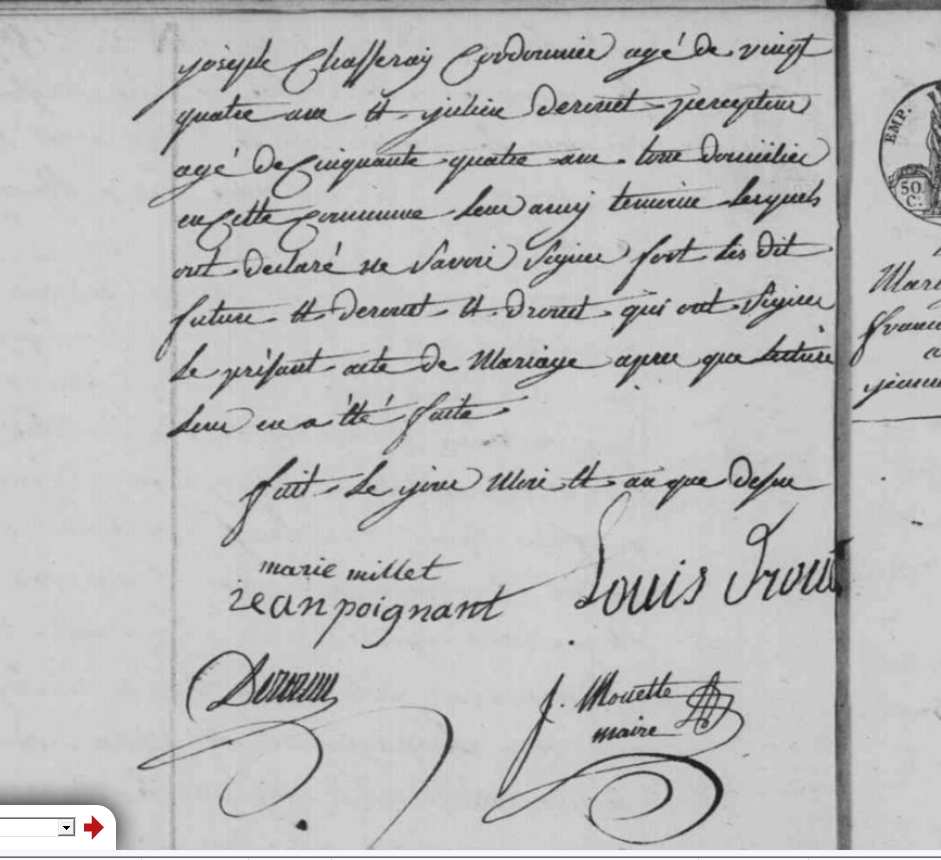 joseph Chasseray Cordonnier agé de vingt
quatre ans et julien derouet percepteur
agé de Cinquante quatre ans tous domicilier
en Cette Commune leur amy temoins lesquels
ont declaré ne savoir signer fort les dit
future et derouet et drouet qui ont signer
le présant acte de Mariage apres que lecture
leur en a été faite
fait le jour Mois et an que desus
marie millet
jean poignant
Louis Drouet
Derouet
J. Mouette
maire
EMP.
50
C.
Mari